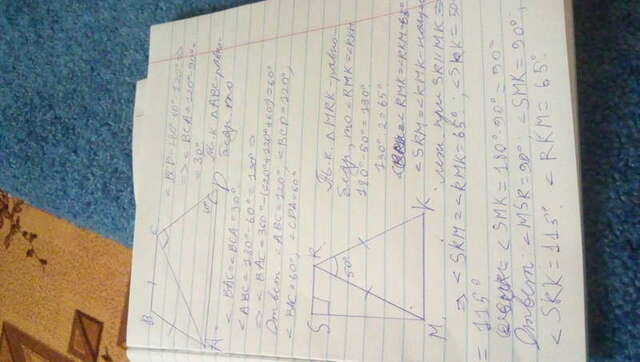 B C
A D
∠BCD=180°-60°=120° ⇒
⇒ ∠BCA=120°-90°
=30°
Т.к. △ABC-равно-
бедр, то
∠BAC=∠BCA=30°
∠ABC=180°-60°=120° ⇒
⇒ ∠BAC=360°-(120°+120°+60°)=60°
Ответ ∠ABC=120°, ∠BCD=120°,
∠BAC=60°, ∠CDA=60°
S R
50°
M K
Т.к. △MRK-равно-
бедр, то ∠RMK=∠RKM
180°-50°=130°
130°:2=65°
∠RMK=∠RKM=65°
∠SRM=∠RMK-накр
леж. при SR||MK ⇒
⇒ ∠SRM=∠RMK=65°; ∠SRK=50°
=115°
∠SMK=180°-90°=90°
Ответ: ∠MSR=90°; ∠SMK=90°;
∠SRK=115°. ∠RKM=65°.